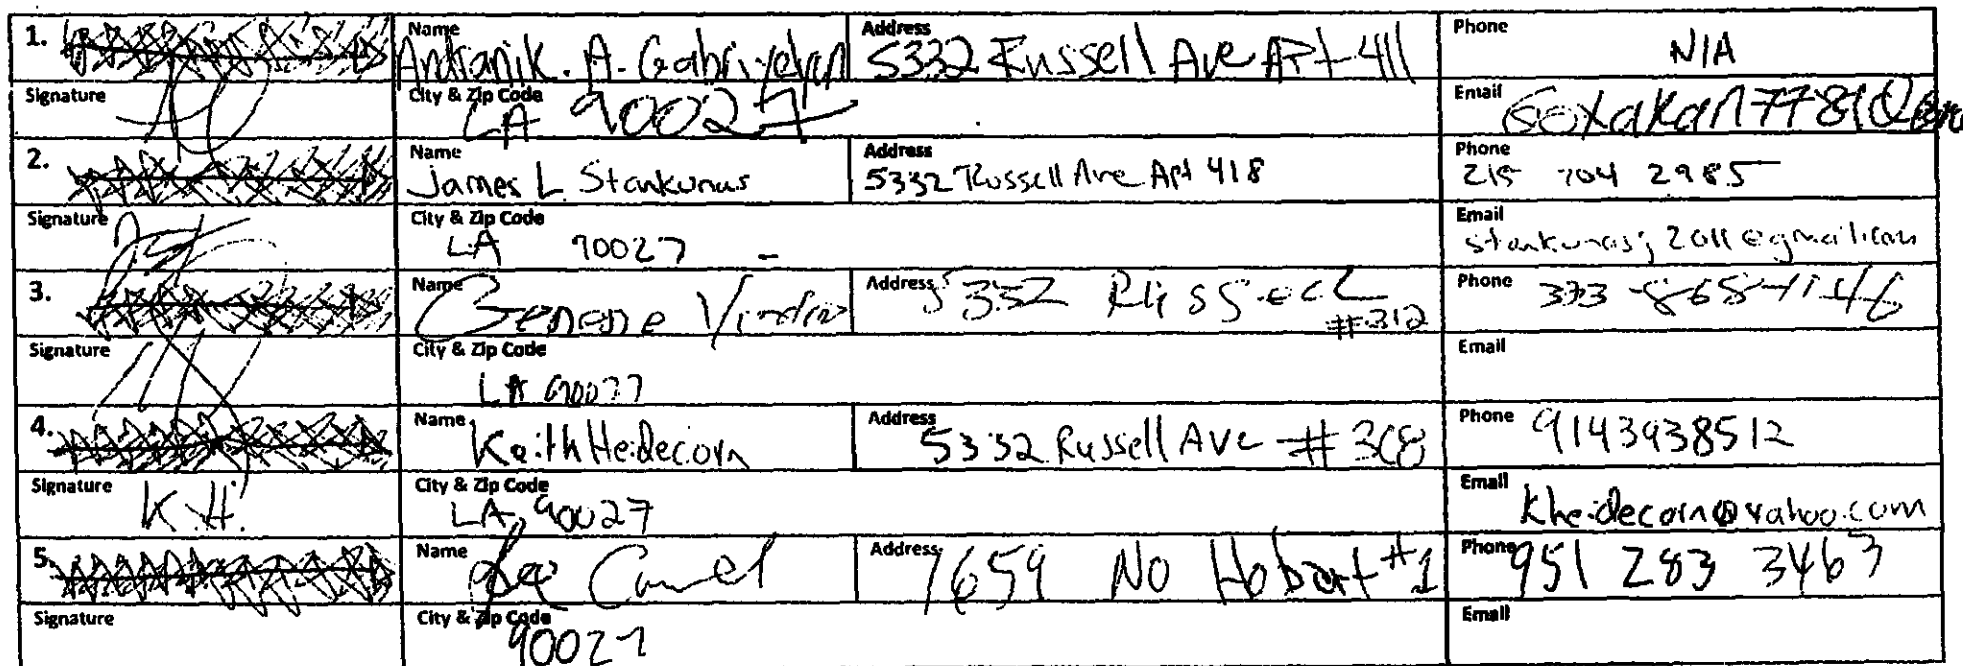 1. Name Andranik. A. Gabriyelyan Address 5332 Russell Ave APt 411 Phone N/A
Signature City & Zip Code LA 90027 Email
2. Name James L Stankunas Address 5332 Russell Ave Apt 418 Phone 215 704 2985
Signature City & Zip Code LA 90027 Email stankunasj2011@gmail.com
3. Name Address 5332 Russell #312 Phone
Signature City & Zip Code LA 90027 Email
4. Name Keith Heidecorn Address 5332 Russell Ave # 308 Phone 9143938512
Signature K.H. City & Zip Code LA, 90027 Email kheidecorn@yahoo.com
5. Name Address 1659 No Hobart #1 Phone 951 283 3463
Signature City & Zip Code 90027 Email